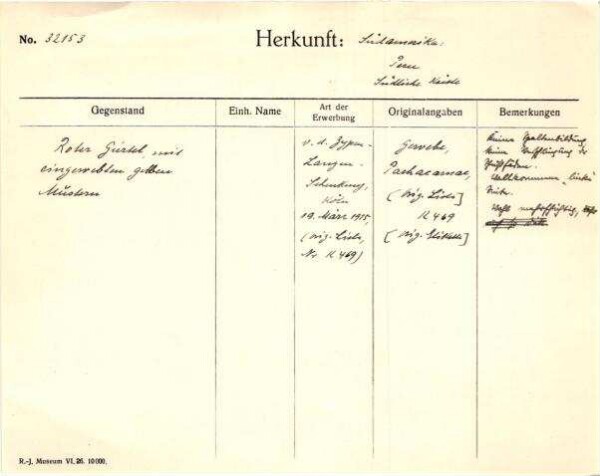 No. 32153
Herkunft: Südamerika.
Peru
Südliche Küste
Gegenstand
Einh. Name
Art der Erwerbung
Originalangaben
Bemerkungen
Roter Gürtel, mit
eingewebten gelben
Mustern
v. d. Zypen-
Langen-
Schenkung,
Köln
19. März 1915,
(Orig. Liste,
Nr. K 469)
Gewebe,
Pachacamac,
(Orig. Liste]
K 469
[Orig. Etikette]
Keine Spaltenbildung
keine
R.-J. Museum VI. 26. 10000.